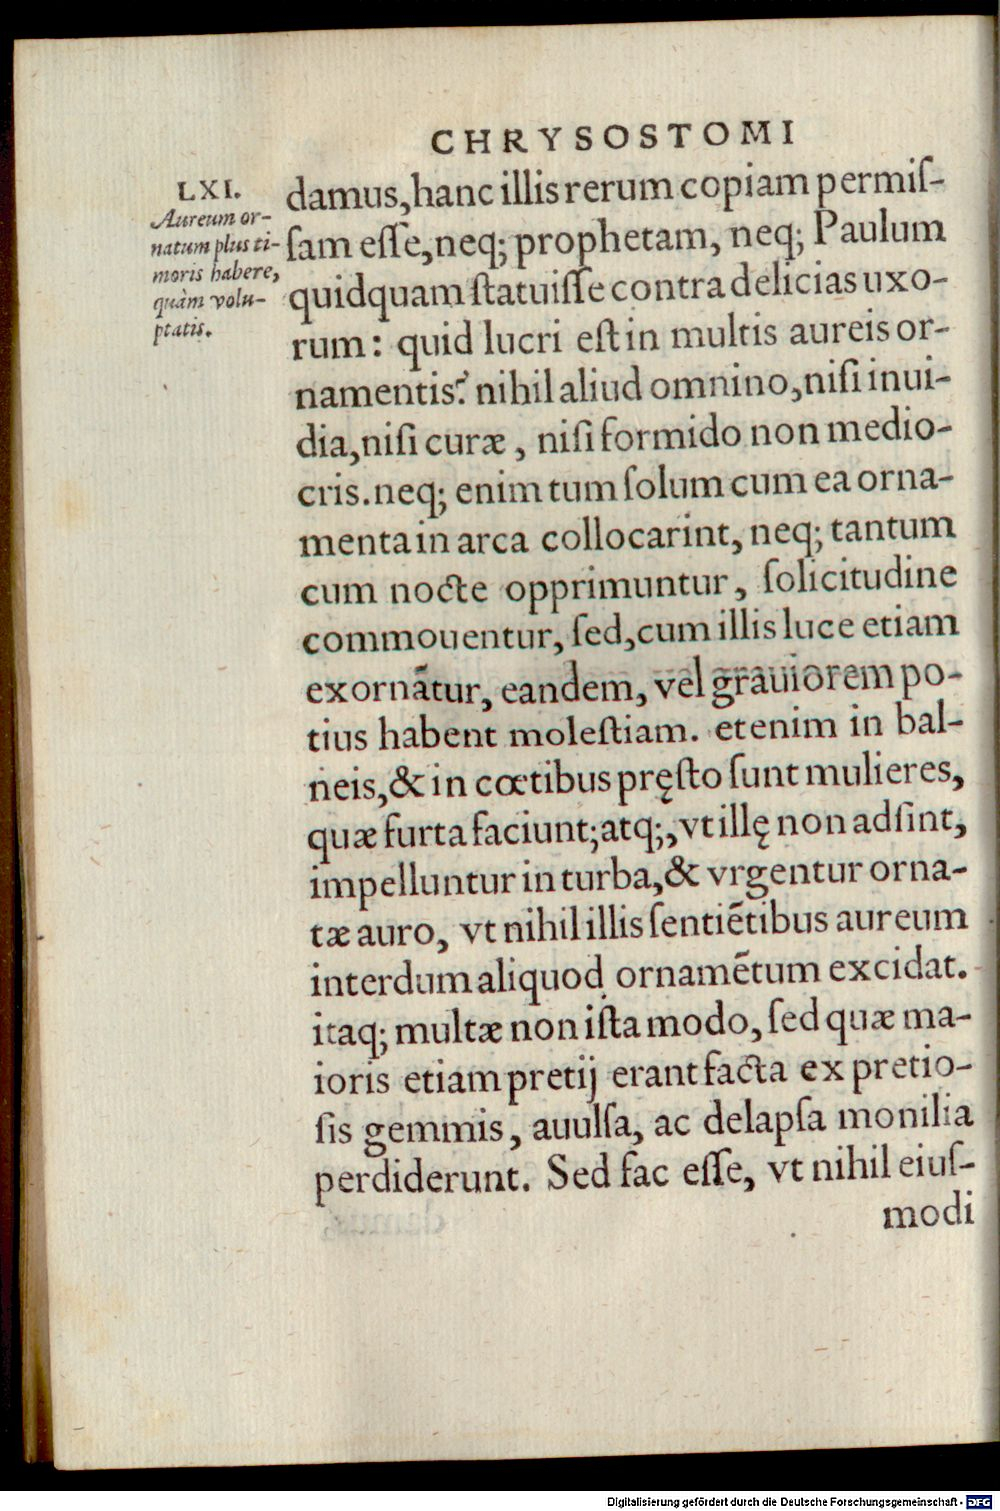 CHRYSOSTOMI
LXI.
Aureum or-
natum plus ti-
moris habere,
quàm volu-
ptatis.
damus,hanc illis rerum copiam permiſ-
ſam eſſe,neq; prophetam, neq; Paulum
quidquam ſtatuiſſe contra delicias uxo-
rum: quid lucri eſt in multis aureis or-
namentis? nihil aliud omnino,niſi inui-
dia,niſi curæ, niſi formido non medio-
cris.neq; enim tum ſolum cum ea orna-
menta in arca collocarint, neq; tantum
cum nocte opprimuntur, ſolicitudine
commouentur, ſed,cum illis luce etiam
exornãtur, eandem, vel grauiorem po-
tius habent moleſtiam. etenim in bal-
neis,& in cœtibus pręſto ſunt mulieres,
quæ furta faciunt;atq;,vt illę non adſint,
impelluntur in turba,& vrgentur orna-
tæ auro, vt nihil illis ſentiẽtibus aureum
interdum aliquod ornamẽtum excidat.
itaq; multæ non iſta modo, ſed quæ ma-
ioris etiam pretij erant facta ex pretio-
ſis gemmis, auulſa, ac delapſa monilia
perdiderunt. Sed fac eſſe, vt nihil eiuſ-
modi
Digitalisierung gefördert durch die Deutsche Forschungsgemeinschaft - DFG